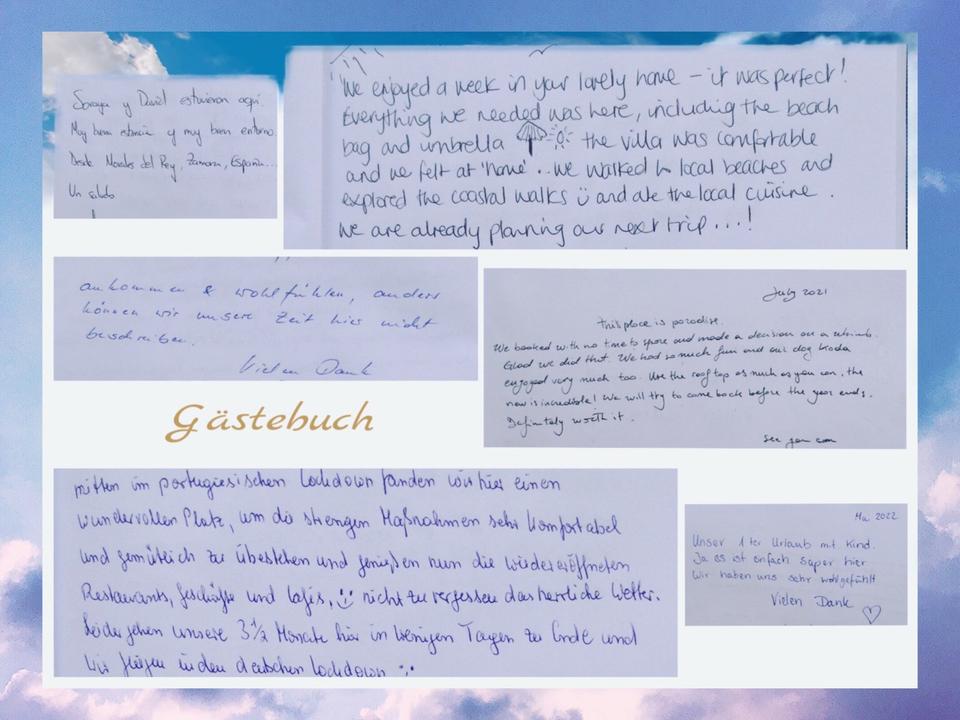 Soraya y David estuvieron aquí.
Muy buena estancia y muy buen entorno.
Desde Morales del Rey, Zamora, España...
Un saludo
We enjoyed a week in your lovely home – it was perfect!
Everything we needed was here, including the beach
bag and umbrella the villa was comfortable
and we felt at 'home'... we walked to local beaches and
explored the coastal walks ü and ate the local cuisine.
We are already planning our next trip...!
ankommen & wohlfühlen, anders
können wir unsere Zeit hier nicht
beschreiben.
Vielen Dank
July 2021
This place is paradise.
We booked with no time to spare and made a decision on a whimb.
Glad we did that. We had so much fun and our dog
enjoyed very much too. Use the rooftop as much as you can, the
view is incredible! We will try to come back before the year ends.
Definitely worth it.
See you
Gästebuch
mitten im portugiesischen Lockdown fanden wir hier einen
wundervollen Platz, um die strengen Maßnahmen sehr komfortabel
und gemütlich zu überstehen und genießen nun die wiedereröffneten
Restaurants, Geschäfte und Cafés, nicht zu vergessen das herrliche Wetter.
Leider gehen unsere 3 1/2 Monate hier in wenigen Tagen zu Ende und
wir fliegen in den deutschen Lockdown
Mai 2022
Unser 1ter Urlaub mit Kind.
Ja es ist einfach super hier
Wir haben uns sehr wohlgefühlt
Vielen Dank